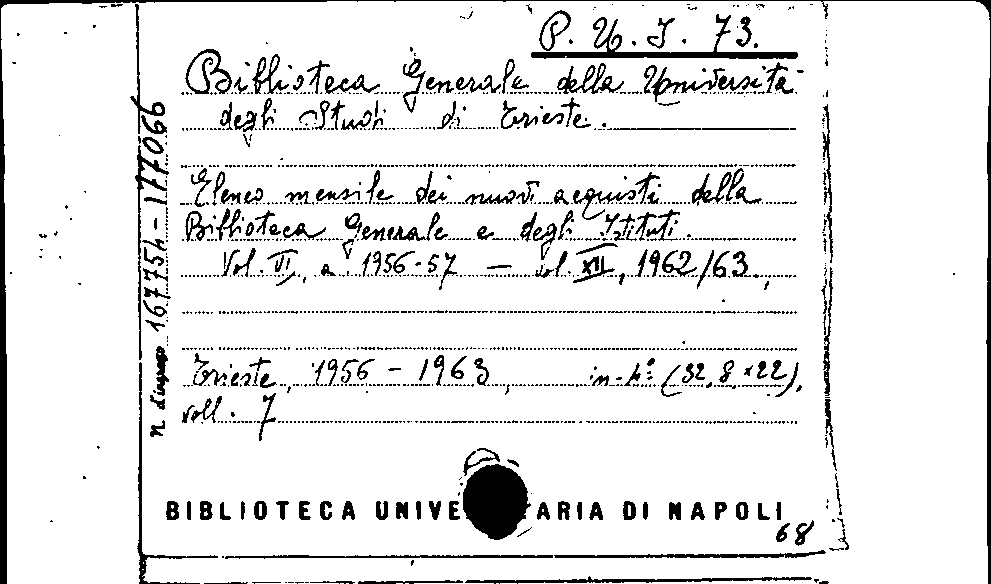 P. U. I. 73.
Biblioteca Generale della Università
degli Studi di Trieste.
Elenco mensile dei nuovi acquisti della
Biblioteca Generale e degli Istituti.
Vol. VI, a. 1956-57 — vol. XII, 1962/63.,
Trieste, 1956 - 1963, in-4° (32,8 x 22),
voll. 7
n. d'ingresso 167754 - 177066
BIBLIOTECA UNIVE ARIA DI NAPOLI
68